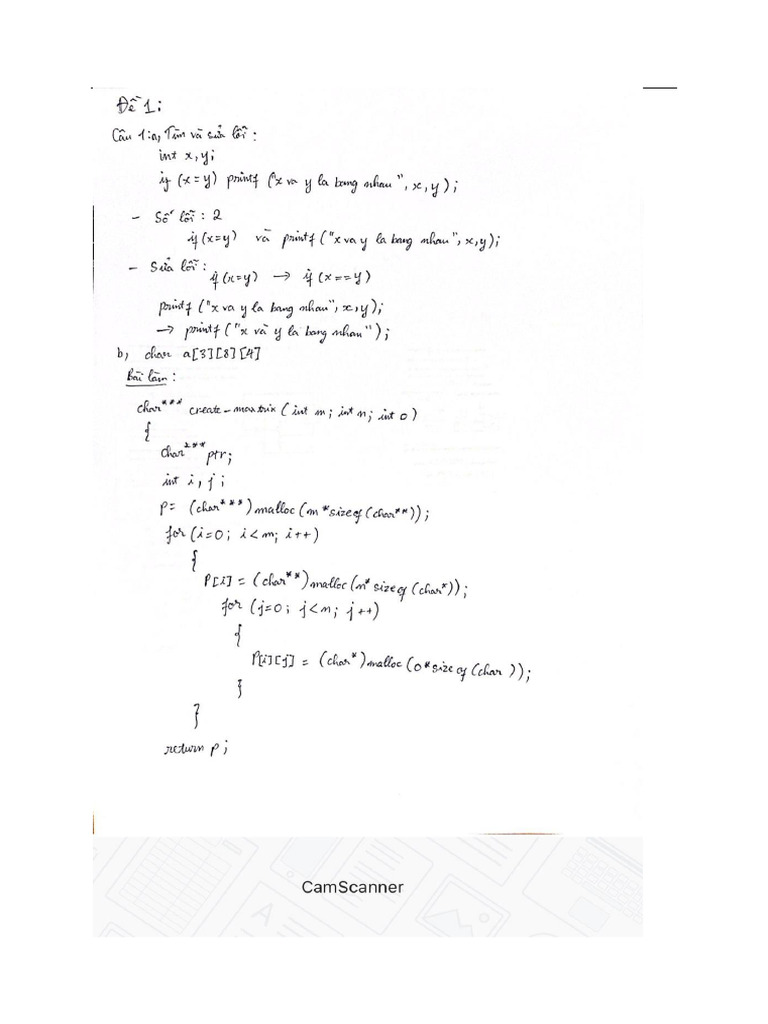 Đề 1:
Câu 1: a, Tìm và sửa lỗi:
int x, y;
if (x = y) printf ("x va y la bang nhau", x, y);
- Số lỗi: 2
if (x=y) và printf ("x va y la bang nhau", x, y);
- Sửa lỗi:
if (x=y) → if (x==y)
printf ("x va y la bang nhau", x, y);
→ printf ("x và y la bang nhau");
b, char a[3][8][4]
Bài làm:
char*** create_maxtrix (int m; int n; int o)
{
char*** ptr;
int i, j;
p= (char***) malloc (m * size of (char**));
for (i=0; i<m; i++)
{
P[i] = (char**) malloc (n* size of (char*));
for (j=0; j<n; j++)
{
P[i][j] = (char*) malloc (o* size of (char ));
}
}
return p;
CamScanner